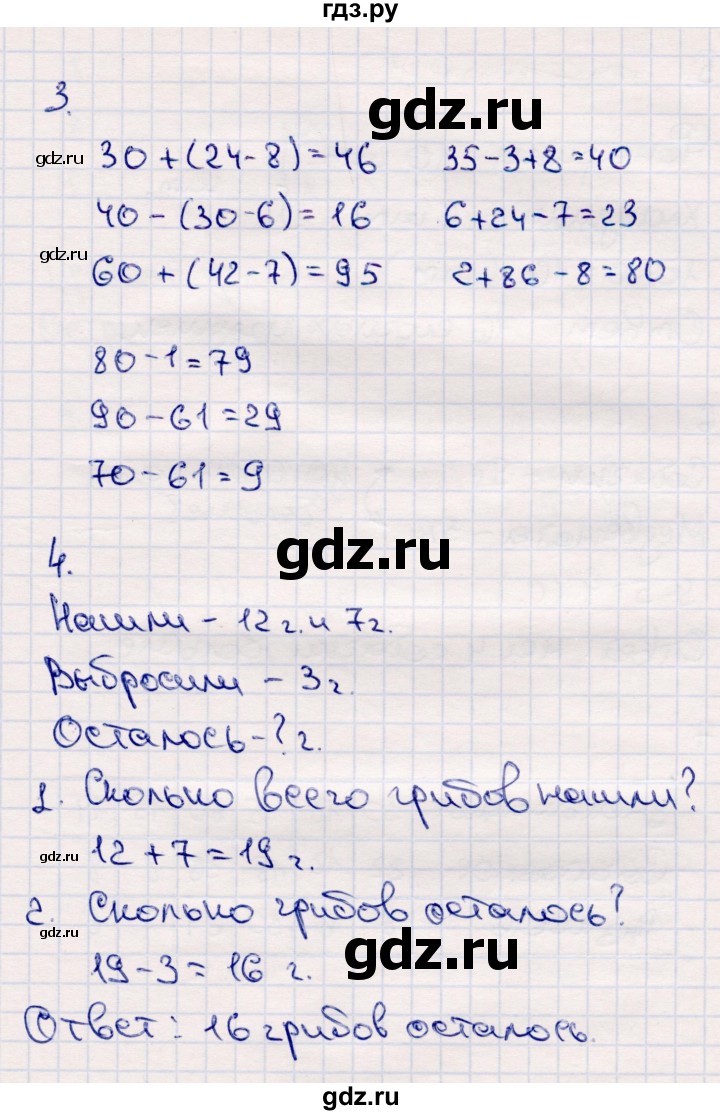 гдз.ру
gdz.ru
3.
gdz.ru
30+(24-8)=46 35-3+8=40
40-(30-6)=16 6+24-7=23
gdz.ru
60+(42-7)=95 2+86-8=80
80-1=79
90-61=29
70-61=9
gdz.ru
4.
Нашли - 12 г. и 7 г.
Выбросили - 3 г.
Осталось - ? г.
1. Сколько всего грибов нашли?
gdz.ru
12+7=19 г.
2. Сколько грибов осталось?
gdz.ru
gdz.ru
19-3=16 г.
Ответ: 16 грибов осталось.
gdz.ru